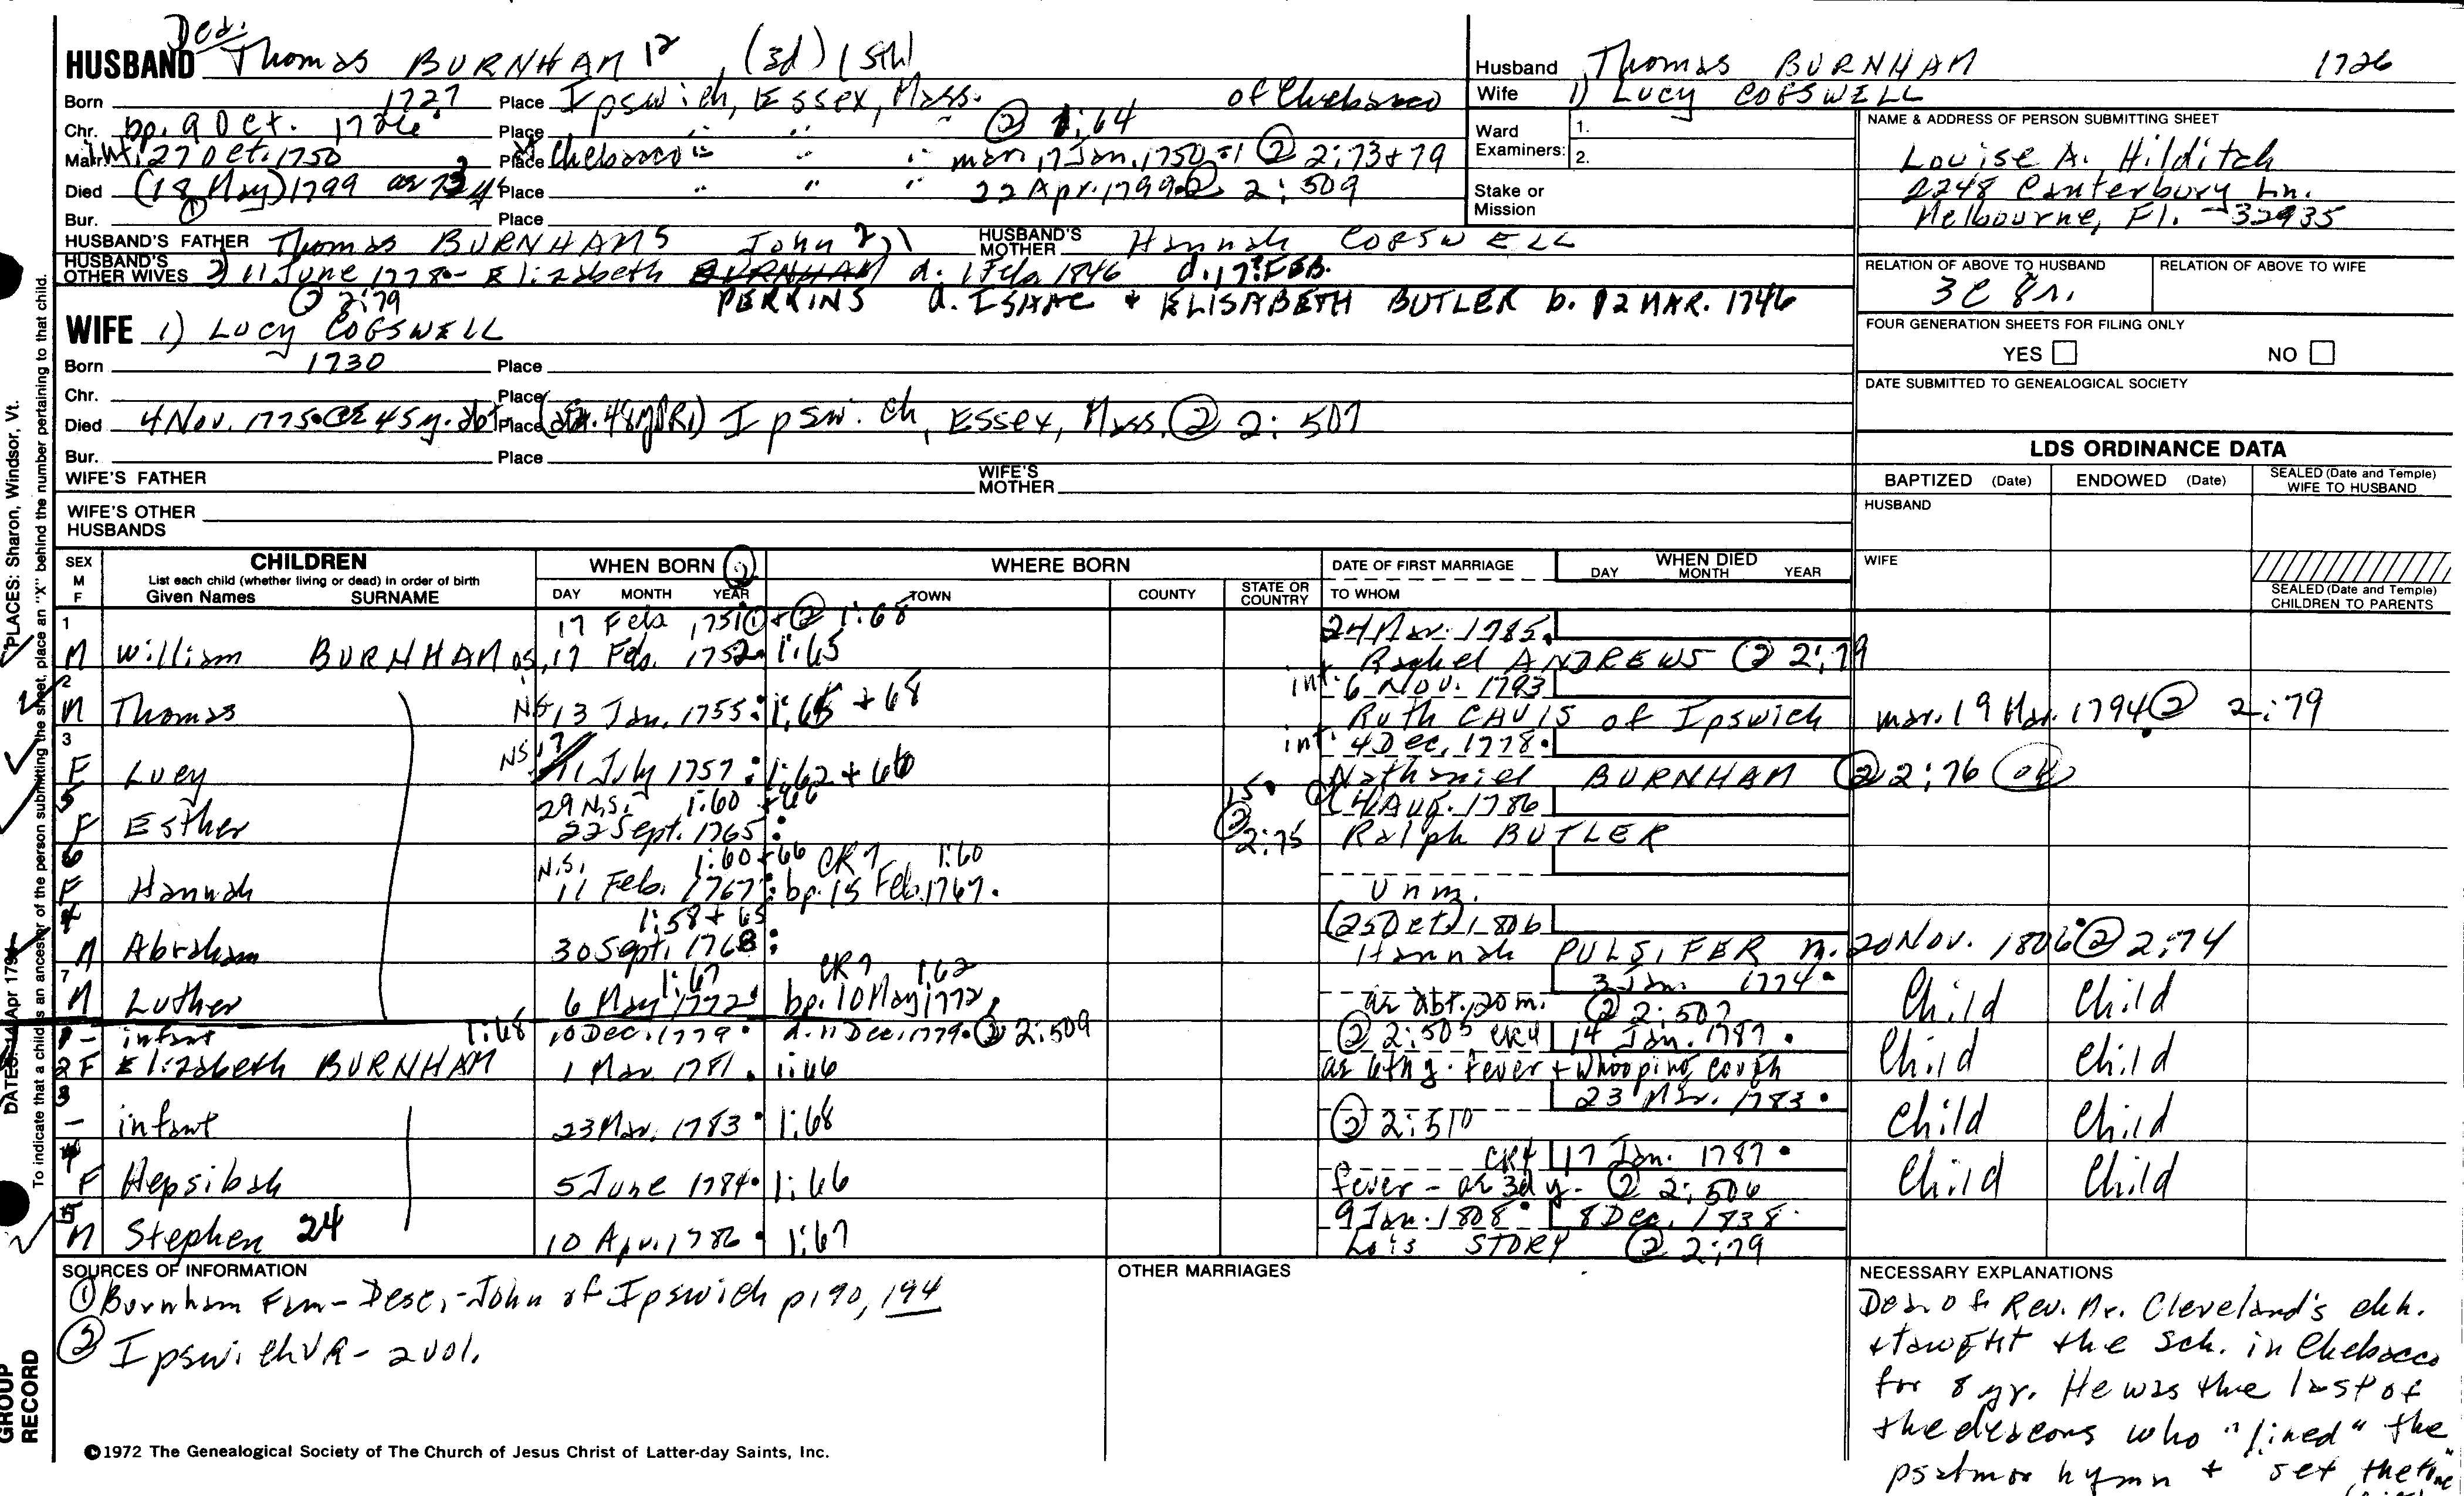 Dea.
HUSBAND Thomas BURNHAM 12, (3d) (5th)
Born 1727 Place Ipswich, Essex, Mass. of Chebacco
Chr. bp. 9 Oct. 1726 Place " " " ② 1:64
Marr. Int. 27 Oct. 1750 Place Chebacco " " " marr. 17 Jan. 1750-1 ② 2:73+79
Died (18 May) 1799 ae 73 Place " " " 22 Apr. 1799 ② 2:509
①
Bur. Place
HUSBAND'S FATHER Thomas BURNHAM5 John HUSBAND'S MOTHER Hannah COGSWELL
HUSBAND'S OTHER WIVES 2) 11 June 1778 - Elizabeth BURNHAM d. 1 Feb 1846 d. 17 FEB.
② 2:79 PERKINS d. ISAAC + ELISABETH BUTLER b. 12 MAR. 1746
WIFE 1) Lucy COGSWELL
Born 1730 Place
Chr. Place
Died 4 Nov. 1775. ae 45 y. Place Ipswich, Essex, Mass. ② 2:507
Bur. Place
WIFE'S FATHER WIFE'S MOTHER
WIFE'S OTHER HUSBANDS
Husband Thomas BURNHAM 1726
Wife 1) Lucy COGSWELL
Ward Examiners: 1.
2.
Stake or Mission
NAME & ADDRESS OF PERSON SUBMITTING SHEET
Louise A. Hilditch
2248 Canterbury Ln.
Melbourne, Fl. - 32935
RELATION OF ABOVE TO HUSBAND RELATION OF ABOVE TO WIFE
3c 8r.
FOUR GENERATION SHEETS FOR FILING ONLY
YES NO
DATE SUBMITTED TO GENEALOGICAL SOCIETY
LDS ORDINANCE DATA
BAPTIZED (Date) ENDOWED (Date) SEALED (Date and Temple) WIFE TO HUSBAND
HUSBAND
WIFE
SEALED (Date and Temple) CHILDREN TO PARENTS
SEX M F CHILDREN WHEN BORN ② WHERE BORN DATE OF FIRST MARRIAGE WHEN DIED
List each child (whether living or dead) in order of birth
Given Names SURNAME DAY MONTH YEAR TOWN COUNTY STATE OR COUNTRY TO WHOM DAY MONTH YEAR
1 17 Feb 1751 ① + ② 1:68 24 Mar. 1785.
M William BURNHAM os, 17 Feb. 1752. 1:65 Rachel ANDREWS ② 2:79
2 int. 6 Nov. 1793
M Thomas NS 13 Jan. 1755: 1:65 + 68 Ruth CAVIS of Ipswich mar. 19 Mar. 1794 ② 2:79
3 NS 17 int. 4 Dec. 1778.
F Lucy 11 July 1757: 1:62 + 66 Nathaniel BURNHAM ② 2:76 OK
5 29 N.S. 1:60 + 66 15. (4 Aug. 1786
F Esther 22 Sept. 1765: ② 2:75 Ralph BUTLER
6 N.S. 1:60 + 66 CR7 1:60
F Hannah 11 Feb. 1767: bp. 15 Feb. 1767. Unm.
4 1:58 + 65 (25 Oct) 1806
M Abraham 30 Sept. 1768: Hannah PULSIFER m. 20 Nov. 1806 ② 2:74
7 1:67 CR7 1:62 3 Jan. 1774.
M Luther 6 May 1772: bp. 10 May 1772. ae abt. 20 m. ② 2:507 Child Child
1 - infant 1:68 10 Dec. 1779. d. 11 Dec. 1779. ② 2:509 ② 2:505 CR4 14 Jan. 1787.
2 F Elizabeth BURNHAM 1 Mar. 1781. 1:66 ae 6th y. fever + whooping cough Child Child
3 23 Mar. 1783.
- infant 23 Mar. 1783. 1:68 ② 2:510 Child Child
4 CR4 17 Jan. 1787.
F Hepsibah 5 June 1784. 1:66 fever - ae 3d y. ② 2:506 Child Child
5 9 Jan. 1808. 8 Dec. 1838.
M Stephen 24 10 Apr. 1786. 1:67 Lois STORY ② 2:79
SOURCES OF INFORMATION
① Burnham Fam - Desc. - John of Ipswich p190, 194
② Ipswich VR - 2 vol.
OTHER MARRIAGES
NECESSARY EXPLANATIONS
Dea. of Rev. Mr. Cleveland's chh.
+ tawght the sch. in Chebacco
for 8 yr. He was the last of
the deacons who "lined" the
psalm or hymn + "set the tune"
©1972 The Genealogical Society of The Church of Jesus Christ of Latter-day Saints, Inc.
PLACES: Sharon, Windsor, Vt.
DATES: 14 Apr 1794
To indicate that a child is an ancestor of the person submitting the sheet, place an "X" behind the number pertaining to that child.
GROUP
RECORD